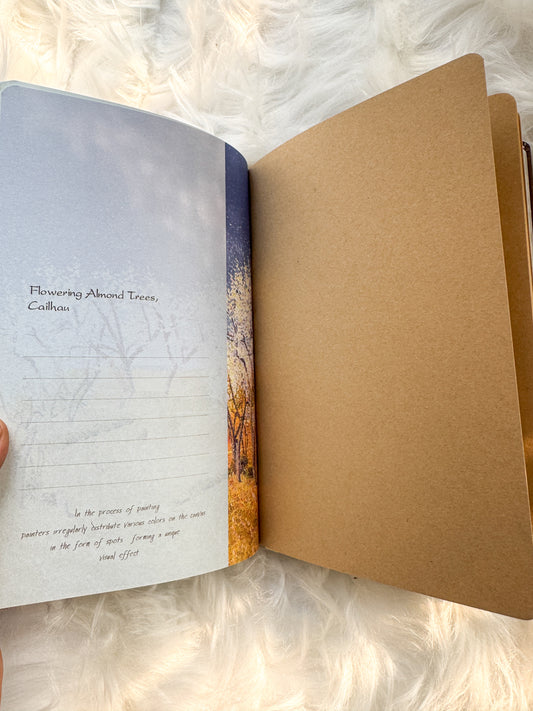 Flowering Almond Trees,
Cailhau
In the process of painting
painters irregularly distribute various colors on the canvas
in the form of spots forming a unique
visual effect